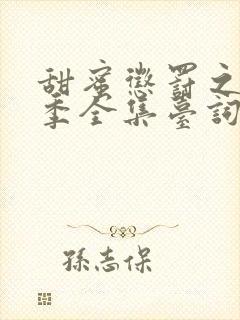 甜蜜懲罰之
季全集臺詞
孫志保